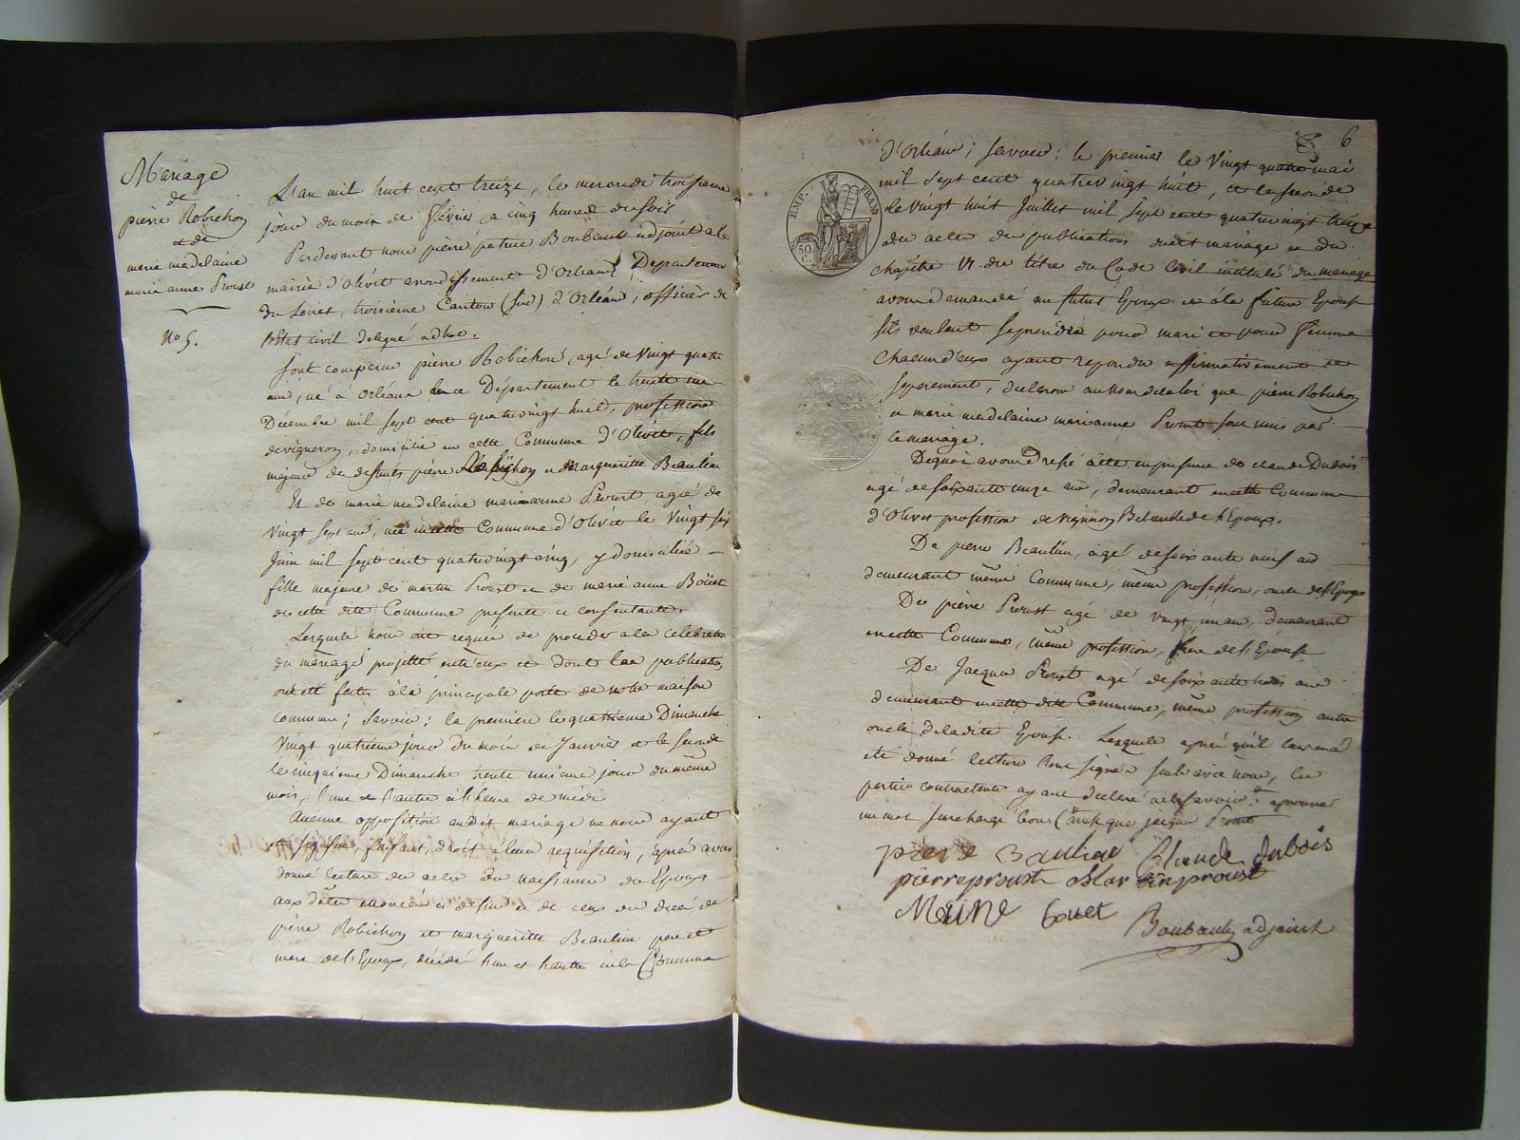 Mariage
de
pierre Robichon
et de
marie madelaine
marie anne Proust
No 5.
L'an mil huit cent treize, le mercredi troisieme
jour du mois de février a cinq heures du soir
Pardevant nous pierre patrice Boubault adjoint a la
mairie d'olivet arrondissement d'orleans Departement
du Loiret, troisieme Canton (sud) d'Orléans, officier de
l'état civil delegué adhoc.
sont comparus pierre Robichon, agé de vingt quatre
ans, né à orléans en ce Departement le trente un
Décembre mil sept cent quatrevingt huit, profession
de vigneron, domicilié en cette Commune d'Olivet, fils
majeur de defunts pierre Robichon et Margueritte Beaulieu
Et de marie madelaine marianne Proust agée de
vingt sept ans, née en cette Commune d'Olivet le vingt six
Juin mil sept cent quatrevingt cinq, y domiciliée
fille majeure de martin Proust et de marie anne Boüet
de cette dite Commune presents et consentants.
Lesquels nous ont requis de proceder a la celebration
du mariage projetté entr'eux et dont les publications
ont été faites à la principale porte de notre maison
commune; Savoir: la premiere le quatrieme Dimanche
vingt quatrieme jour du mois de Janvier et la seconde
le cinquieme Dimanche trente unieme jour du même
mois, l'une et l'autre à l'heure de midi
Aucune opposition audit mariage ne nous ayant
été signifiée, faisant droit à leur requisition, après avoir
donné lecture des actes de naissance des Epoux
aux dates énoncées ci dessus et de ceux du decès de
pierre Robichon et margueritte Beaulieu pere et
mere de l'Epoux, décédés l'un et l'autre en la Commune
6
d'Orléans; savoir: le premier le vingt quatre mai
mil sept cent quatrevingt huit, et la seconde
le vingt huit Juillet mil sept cent quatrevingt treize
des actes de publications dudit mariage et du
chapitre VI du titre du Code Civil intitulé du mariage
avons demandé au futur Epoux et à la future Epouse
s'ils veulent se prendre pour mari et pour femme
chacun d'eux ayant repondu affirmativement et
separement, declarons au nom de la loi que pierre Robichon
et marie madelaine marianne Proust sont unis par
le mariage.
EMP. FRANS
50 C.
De quoi avons dressé acte en presence de claude Dubois
agé de soixante onze ans, demeurant en cette Commune
d'Olivet profession de vigneron Bel oncle de l'Epoux.
De pierre Beaulieu, agé de soixante neuf ans
demeurant même Commune, même profession, oncle de l'Epoux
De pierre Proust agé de vingt un an, demeurant
en cette Commune, même profession, frere de l'Epouse
De Jacques Proust agé de soixante trois ans
demeurant en cette dite Commune, même profession autre
oncle de ladite Epouse. Lesquels après qu'il leur en a
été donné lecture l'ont signé seuls avec nous, les
parties contractantes ayant declaré ne le savoir, approuvé
un mot surchargé bon (ainsi que jacques Proust
pierre Baulieu Claude dubois
pierre proust Martin proust
Marine Bouet
Boubault adjoint